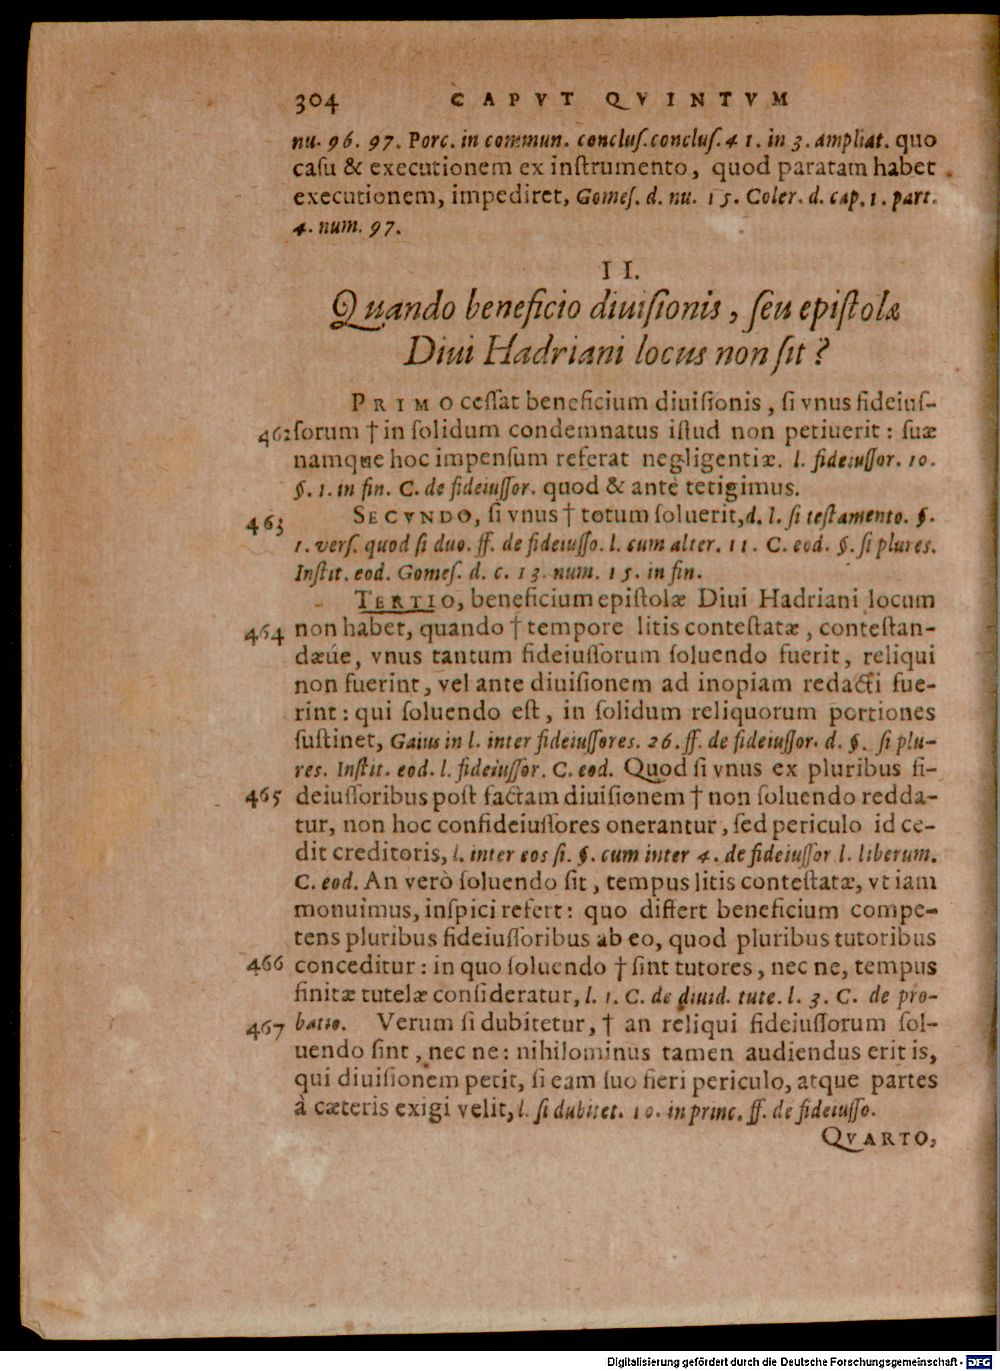 304 CAPVT QVINTVM
nu. 96. 97. Porc. in commun. concluſ. concluſ. 41. in 3. ampliat. quo
caſu & executionem ex inſtrumento, quod paratam habet
executionem, impediret, Gomeſ. d. nu. 15. Coler. d. cap. 1. part.
4. num. 97.
II.
Quando beneficio diuiſionis, ſeu epiſtolæ
Diui Hadriani locus non ſit?
PRIMO ceſſat beneficium diuiſionis, ſi vnus fideiuſ-
462 ſorum † in ſolidum condemnatus iſtud non petiuerit: ſuæ
namque hoc impenſum referat negligentiæ. l. fideiuſſor. 10.
§. 1. in fin. C. de fideiuſſor. quod & antè tetigimus.
463 SECVNDO, ſi vnus † totum ſoluerit, d. l. ſi teſtamento. §.
1. verſ. quod ſi duo. ff. de fideiuſſo. l. cum alter. 11. C. eod. §. ſi plures.
Inſtit. eod. Gomeſ. d. c. 13. num. 15. in fin.
TERTIO, beneficium epiſtolæ Diui Hadriani locum
464 non habet, quando † tempore litis conteſtatæ, conteſtan-
dæúe, vnus tantum fideiuſſorum ſoluendo fuerit, reliqui
non fuerint, vel ante diuiſionem ad inopiam redacti fue-
rint: qui ſoluendo eſt, in ſolidum reliquorum portiones
ſuſtinet, Gaius in l. inter fideiuſſores. 26. ff. de fideiuſſor. d. §. ſi plu-
res. Inſtit. eod. l. fideiuſſor. C. eod. Quod ſi vnus ex pluribus fi-
465 deiuſſoribus poſt factam diuiſionem † non ſoluendo redda-
tur, non hoc confideiuſſores onerantur, ſed periculo id ce-
dit creditoris, l. inter eos ſi. §. cum inter 4. de fideiuſſor l. liberum.
C. eod. An verò ſoluendo ſit, tempus litis conteſtatæ, vt iam
monuimus, inſpici refert: quo differt beneficium compe-
tens pluribus fideiuſſoribus ab eo, quod pluribus tutoribus
466 conceditur: in quo ſoluendo † ſint tutores, nec ne, tempus
finitæ tutelæ conſideratur, l. 1. C. de diuid. tute. l. 3. C. de pro-
467 batio. Verum ſi dubitetur, † an reliqui fideiuſſorum ſol-
uendo ſint, nec ne: nihilominus tamen audiendus erit is,
qui diuiſionem petit, ſi eam ſuo fieri periculo, atque partes
à cæteris exigi velit, l. ſi dubitet. 10. in princ. ff. de fideiuſſo.
QVARTO,
Digitalisierung gefördert durch die Deutsche Forschungsgemeinschaft - DFG